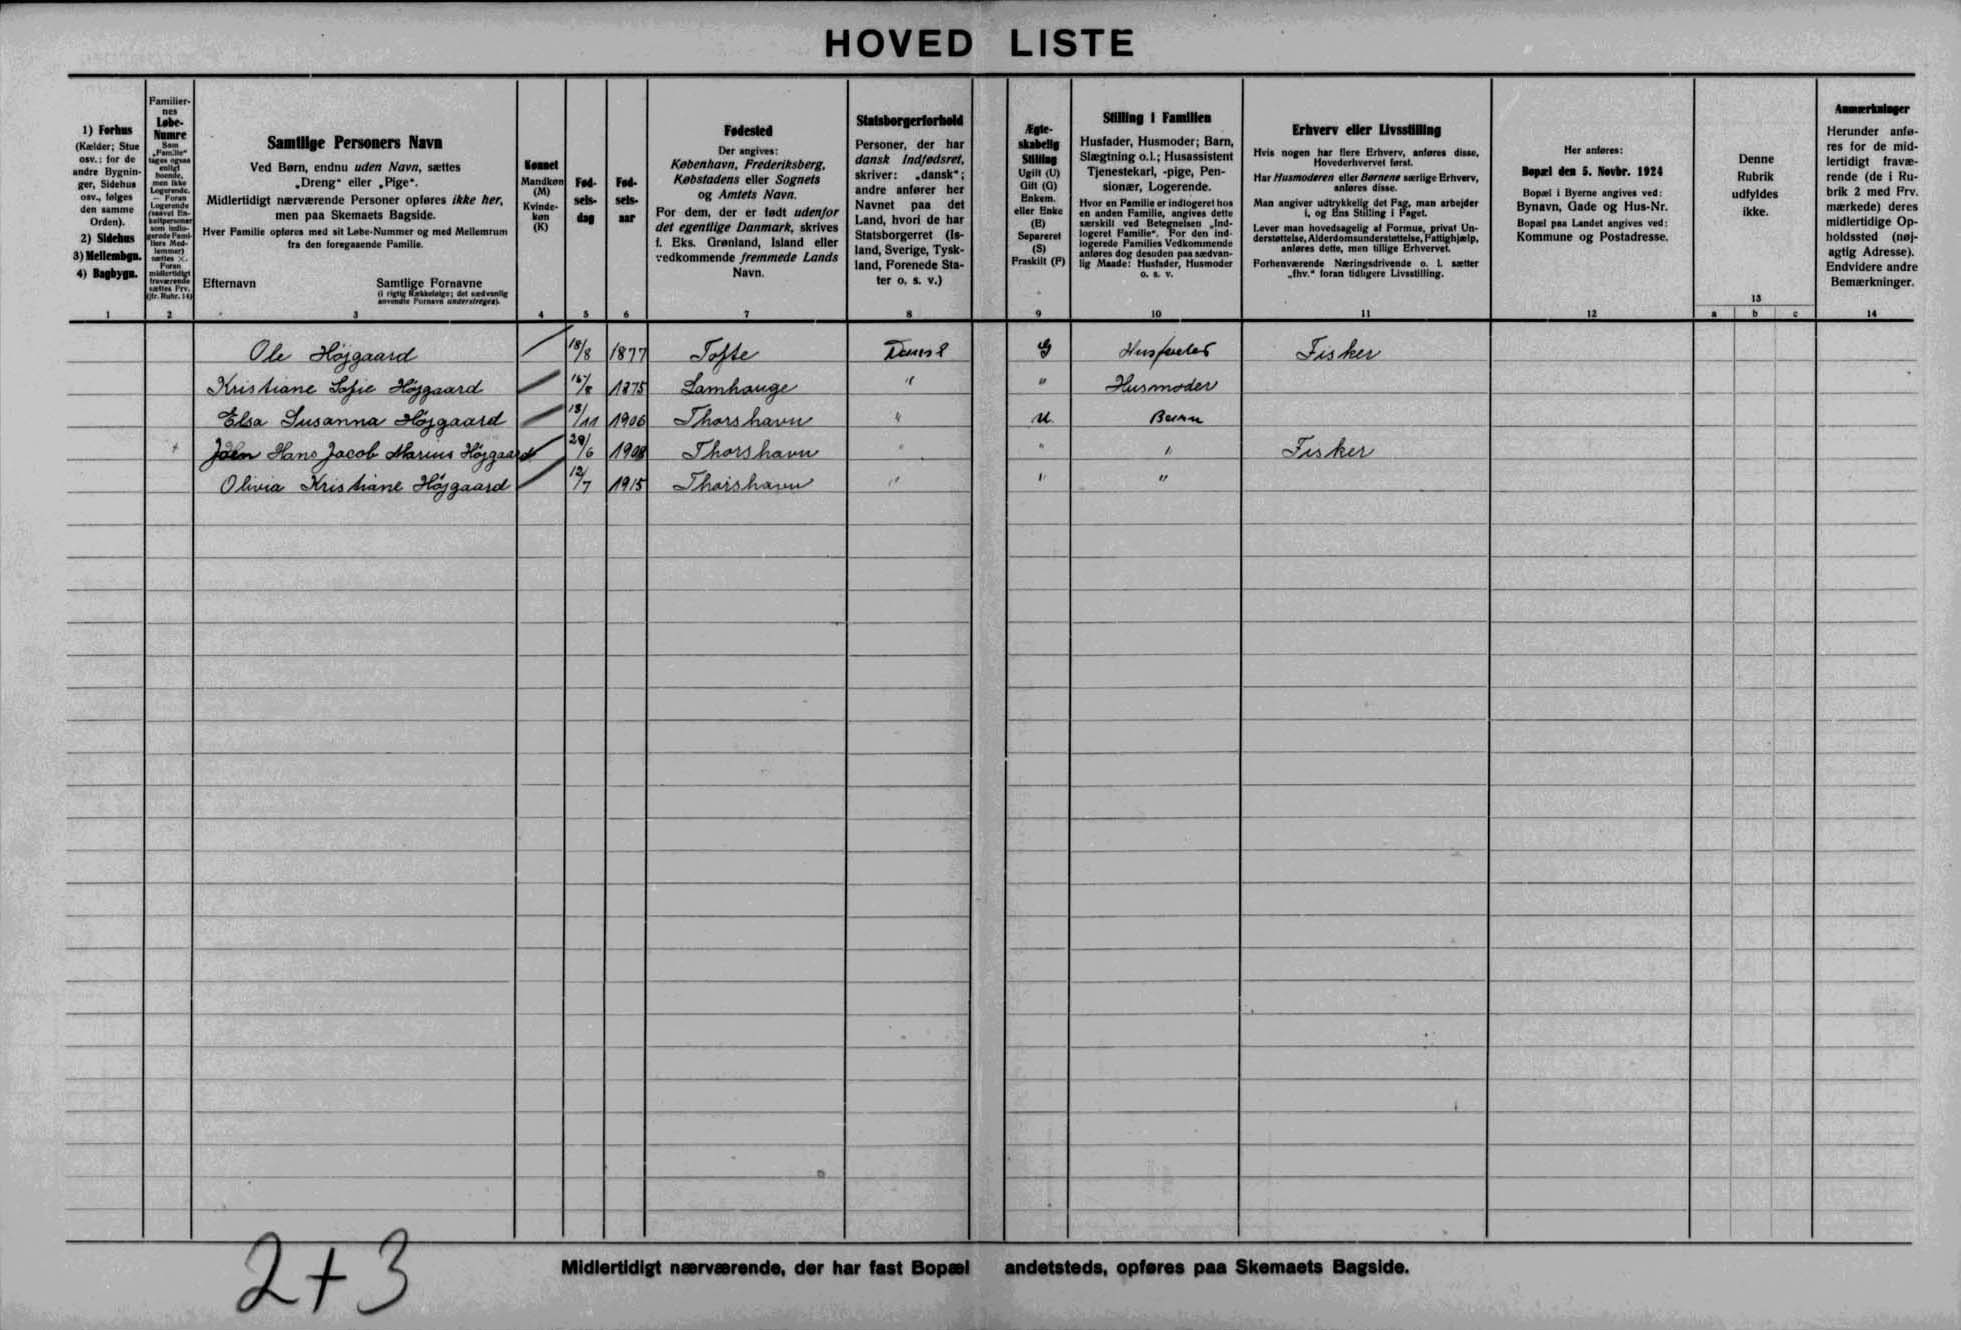 HOVED LISTE
1) Forhus
(Kælder; Stue
osv.; for de
andre Bygnin-
ger, Sidehus
osv., følges
den samme
Orden).
2) Sidehus
3) Mellembgn.
4) Bagbygn.
1
Familier-
nes
Løbe-
Numre
Som
„Familie"
tages ogsaa
enligt
boende,
men ikke
Logerende.
— Foran
Logerende
(saavel En-
keltpersoner
som indlo-
gerede Fami-
liers Med-
lemmer)
sættes ×.
Foran
midlertidigt
fraværende
sættes Frv.
(jfr. Rubr. 14)
2
Samtlige Personers Navn
Ved Børn, endnu uden Navn, sættes
„Dreng" eller „Pige".
Midlertidigt nærværende Personer opføres ikke her,
men paa Skemaets Bagside.
Hver Familie opføres med sit Løbe-Nummer og med Mellemrum
fra den foregaaende Familie.
Efternavn Samtlige Fornavne
(i rigtig Rækkefølge; det sædvanlig
anvendte Fornavn understreges).
3
Kønnet
Mandkøn
(M)
Kvinde-
køn
(K)
4
Fød-
sels-
dag
5
Fød-
sels-
aar
6
Fødested
Der angives:
København, Frederiksberg,
Købstadens eller Sognets
og Amtets Navn.
For dem, der er født udenfor
det egentlige Danmark, skrives
f. Eks. Grønland, Island eller
vedkommende fremmede Lands
Navn.
7
Statsborgerforhold
Personer, der har
dansk Indfødsret,
skriver: „dansk";
andre anfører her
Navnet paa det
Land, hvori de har
Statsborgerret (Is-
land, Sverige, Tysk-
land, Forenede Sta-
ter o. s. v.)
8
Ægte-
skabelig
Stilling
Ugift (U)
Gift (G)
Enkem.
eller Enke
(E)
Separeret
(S)
Fraskilt (F)
9
Stilling i Familien
Husfader, Husmoder; Barn,
Slægtning o.l.; Husassistent
Tjenestekarl, -pige, Pen-
sionær, Logerende.
Hvor en Familie er indlogeret hos
en anden Familie, angives dette
særskilt ved Betegnelsen „Ind-
logeret Familie". For den ind-
logerede Families Vedkommende
anføres dog desuden paa sædvan-
lig Maade: Husfader, Husmoder
o. s. v.
10
Erhverv eller Livsstilling
Hvis nogen har flere Erhverv, anføres disse,
Hovederhvervet først.
Har Husmoderen eller Børnene særlige Erhverv,
anføres disse.
Man angiver udtrykkelig det Fag, man arbejder
i, og Ens Stilling i Faget.
Lever man hovedsagelig af Formue, privat Un-
derstøttelse, Alderdomsunderstøttelse, Fattighjælp,
anføres dette, men tillige Erhvervet.
Forhenværende Næringsdrivende o. l. sætter
„fhv." foran tidligere Livsstilling.
11
Her anføres:
Bopæl den 5. Novbr. 1924
Bopæl i Byerne angives ved:
Bynavn, Gade og Hus-Nr.
Bopæl paa Landet angives ved:
Kommune og Postadresse.
12
Denne
Rubrik
udfyldes
ikke.
13
a b c
Anmærkninger
Herunder anfø-
res for de mid-
lertidigt fravæ-
rende (de i Ru-
brik 2 med Frv.
mærkede) deres
midlertidige Op-
holdssted (nøj-
agtig Adresse).
Endvidere andre
Bemærkninger.
14
Ole Højgaard 18/8 1877 Tofte Dansk G Husfader Fisker
Kristiane Sofie Højgaard 1875 Lamhauge " " Husmoder
Elsa Susanna Højgaard 18/11 1906 Thorshavn " U. Barn
Joen Hans Jacob Marius Højgaard 29/6 1908 Thorshavn " " " Fisker
Olivia Kristiane Højgaard 12/7 1915 Thorshavn " " "
2+3
Midlertidigt nærværende, der har fast Bopæl andetsteds, opføres paa Skemaets Bagside.